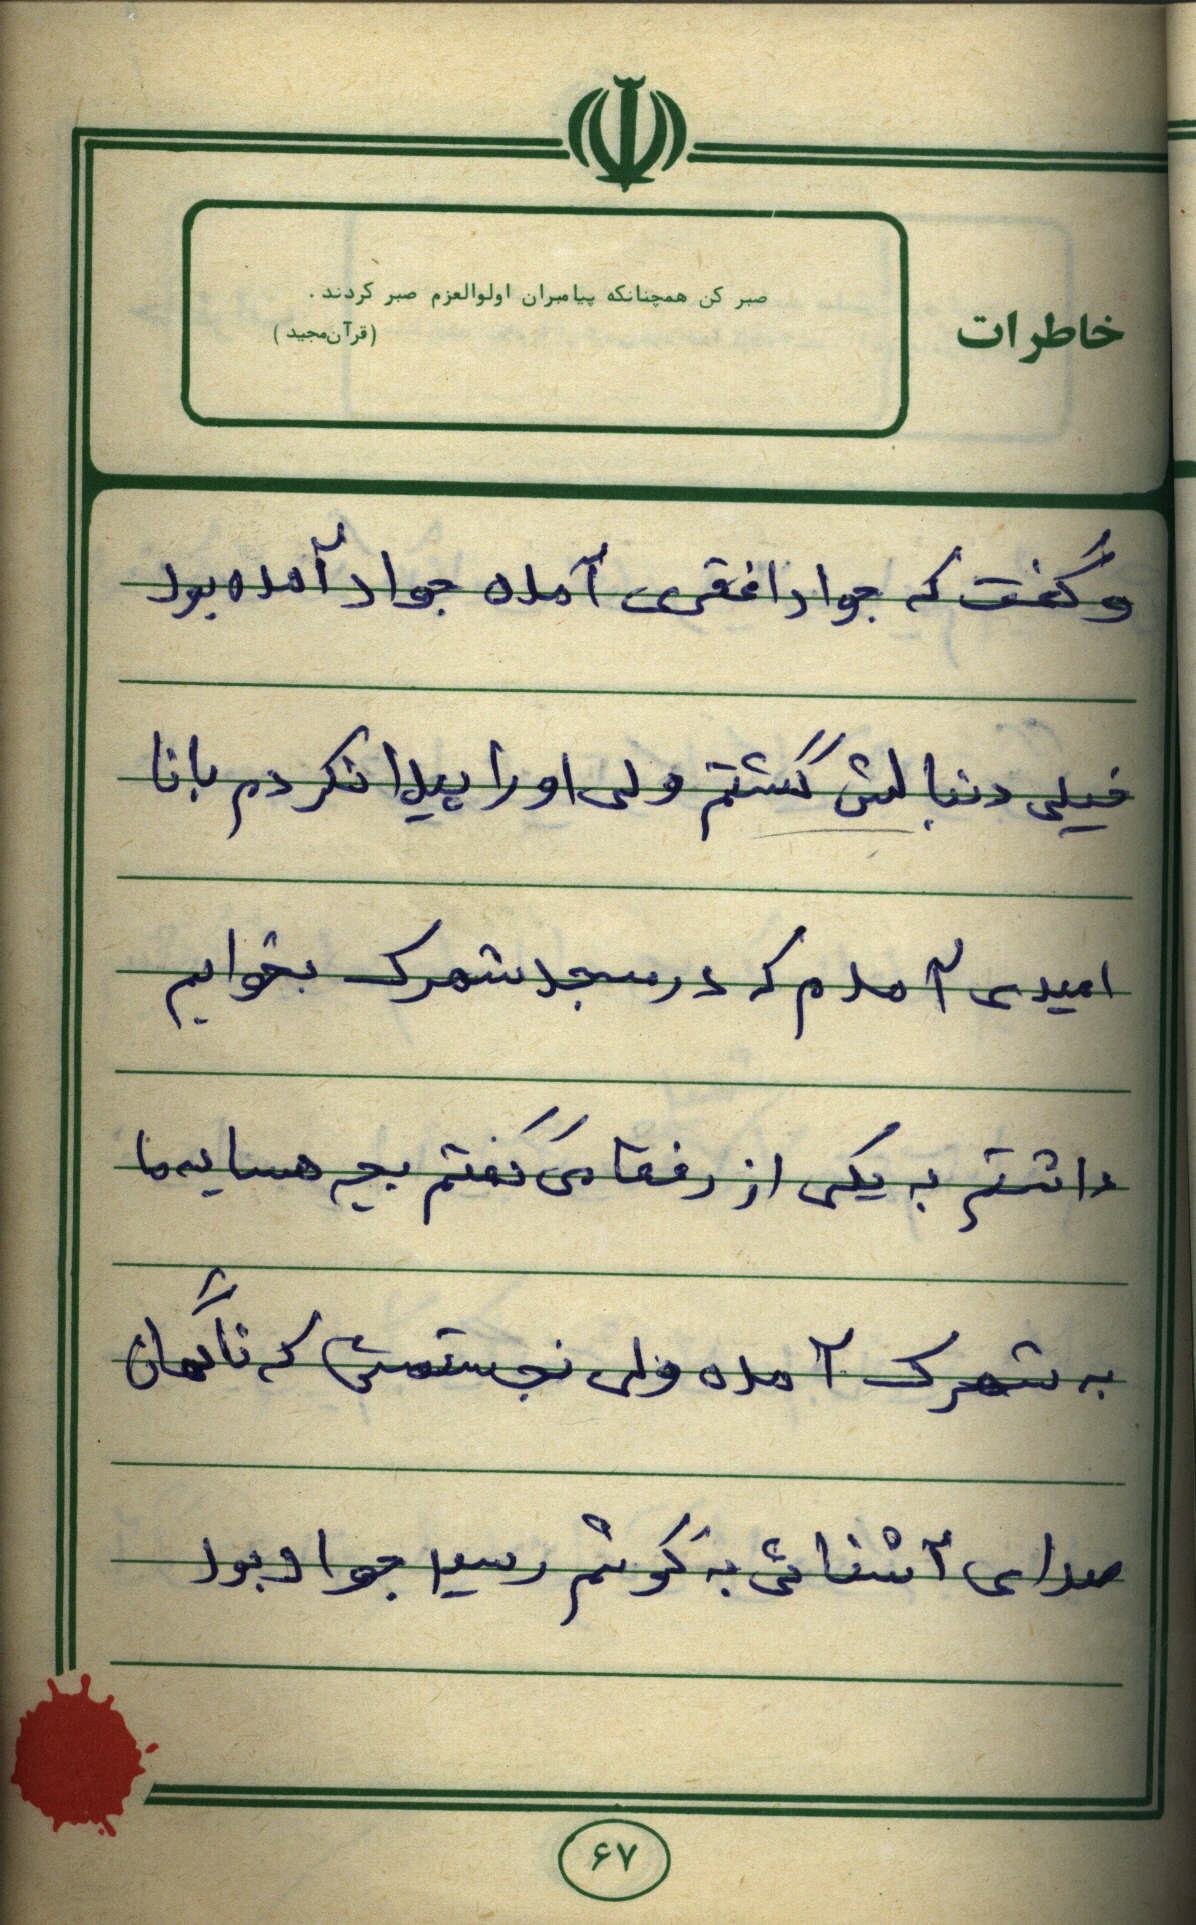 صبر کن همچنانکه پیامبران اولوالعزم صبر کردند .
(قرآن‌مجید)
خاطرات
و گفت که جواد افقری آمده جواد آمده بود
خیلی دنبالش گشتم ولی او را پیدا نکردم با نا
امیدی آمدم که در مسجد شهرک بخوابم
داشتم به یکی از رفقا می گفتم بچه همسایه ما
به شهرک آمده ولی نجستمش که ناگهان
صدای آشنائی به گوشم رسید جواد بود
۶۷